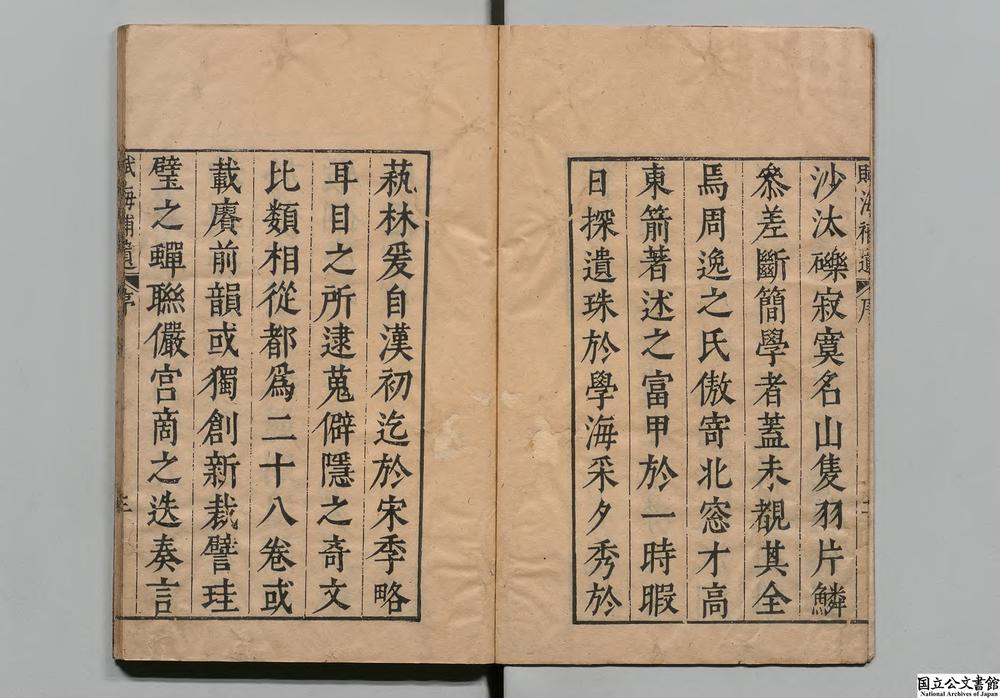 賦海補遺 序
沙汰礫寂寞名山隻羽片鱗
叅差斷簡學者蓋未覩其全
焉周逸之氏傲寄北窓才高
東箭著述之富甲於一時暇
日探遺珠於學海采夕秀於
蓺林爰自漢初迄於宋季略
耳目之所逮蒐僻隱之奇文
比類相從都爲二十八卷或
載賡前韻或獨創新裁譬珪
璧之蟬聯儼宫商之迭奏言
賦海補遺 序 三
国立公文書館
National Archives of Japan